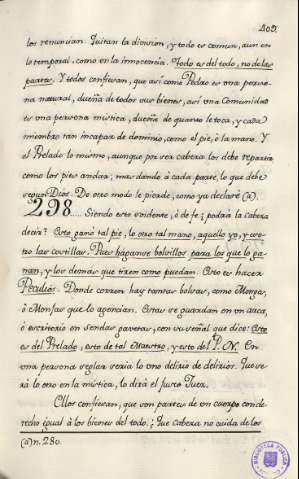 409.
los renuncian. Quitan la division, y todo es comun, aun en
lo temporal, como en la innocencia. Todo es del todo, no de las
partes. Y todos confiesan, que asi como Pedro es una perso
na natural, dueña de todos sus bienes, asi una Comunidad
es una persona mistica, dueña de quanto le toca, y cada
miembro tan incapaz de dominio, como el pie, ò la mano. Y
el Prelado lo mismo, aunque por ser cabeza los debe repartir
como los pies andar; mas dando à cada parte, lo que debe
segun Dios. De otro modo le pierde, como ya declarè (a).
298. Siendo esto evidente, ò de fe; podrà la cabeza
decir? Esto ganò tal pie, lo otro tal mano, aquello yo, y es
tro las costillas. Pues haganse bolsillos para los que lo ga
nan, y los demas que tiren como puedan. Esto es hacer
Peculios. Donde corren hay tantas bolsas, como Monjas,
ò Monjas que lo agencian. Estas se guardan en un arca,
ò escritorio en sendas gavetas, con su señal que dice: Esto
es del Prelado, esto de tal Maestro, y esto del P. N. En
una persona reglar seria lo uno delirio de delirios. Que se
rà lo otro en la mistica, lo dirà el justo Juez.
Ellos confiesan, que son partes de un cuerpo con de
recho igual à los bienes del todo. ¿Que cabeza no cuida de los
(a) n. 280.
BIBLIOTECA PUBLICA